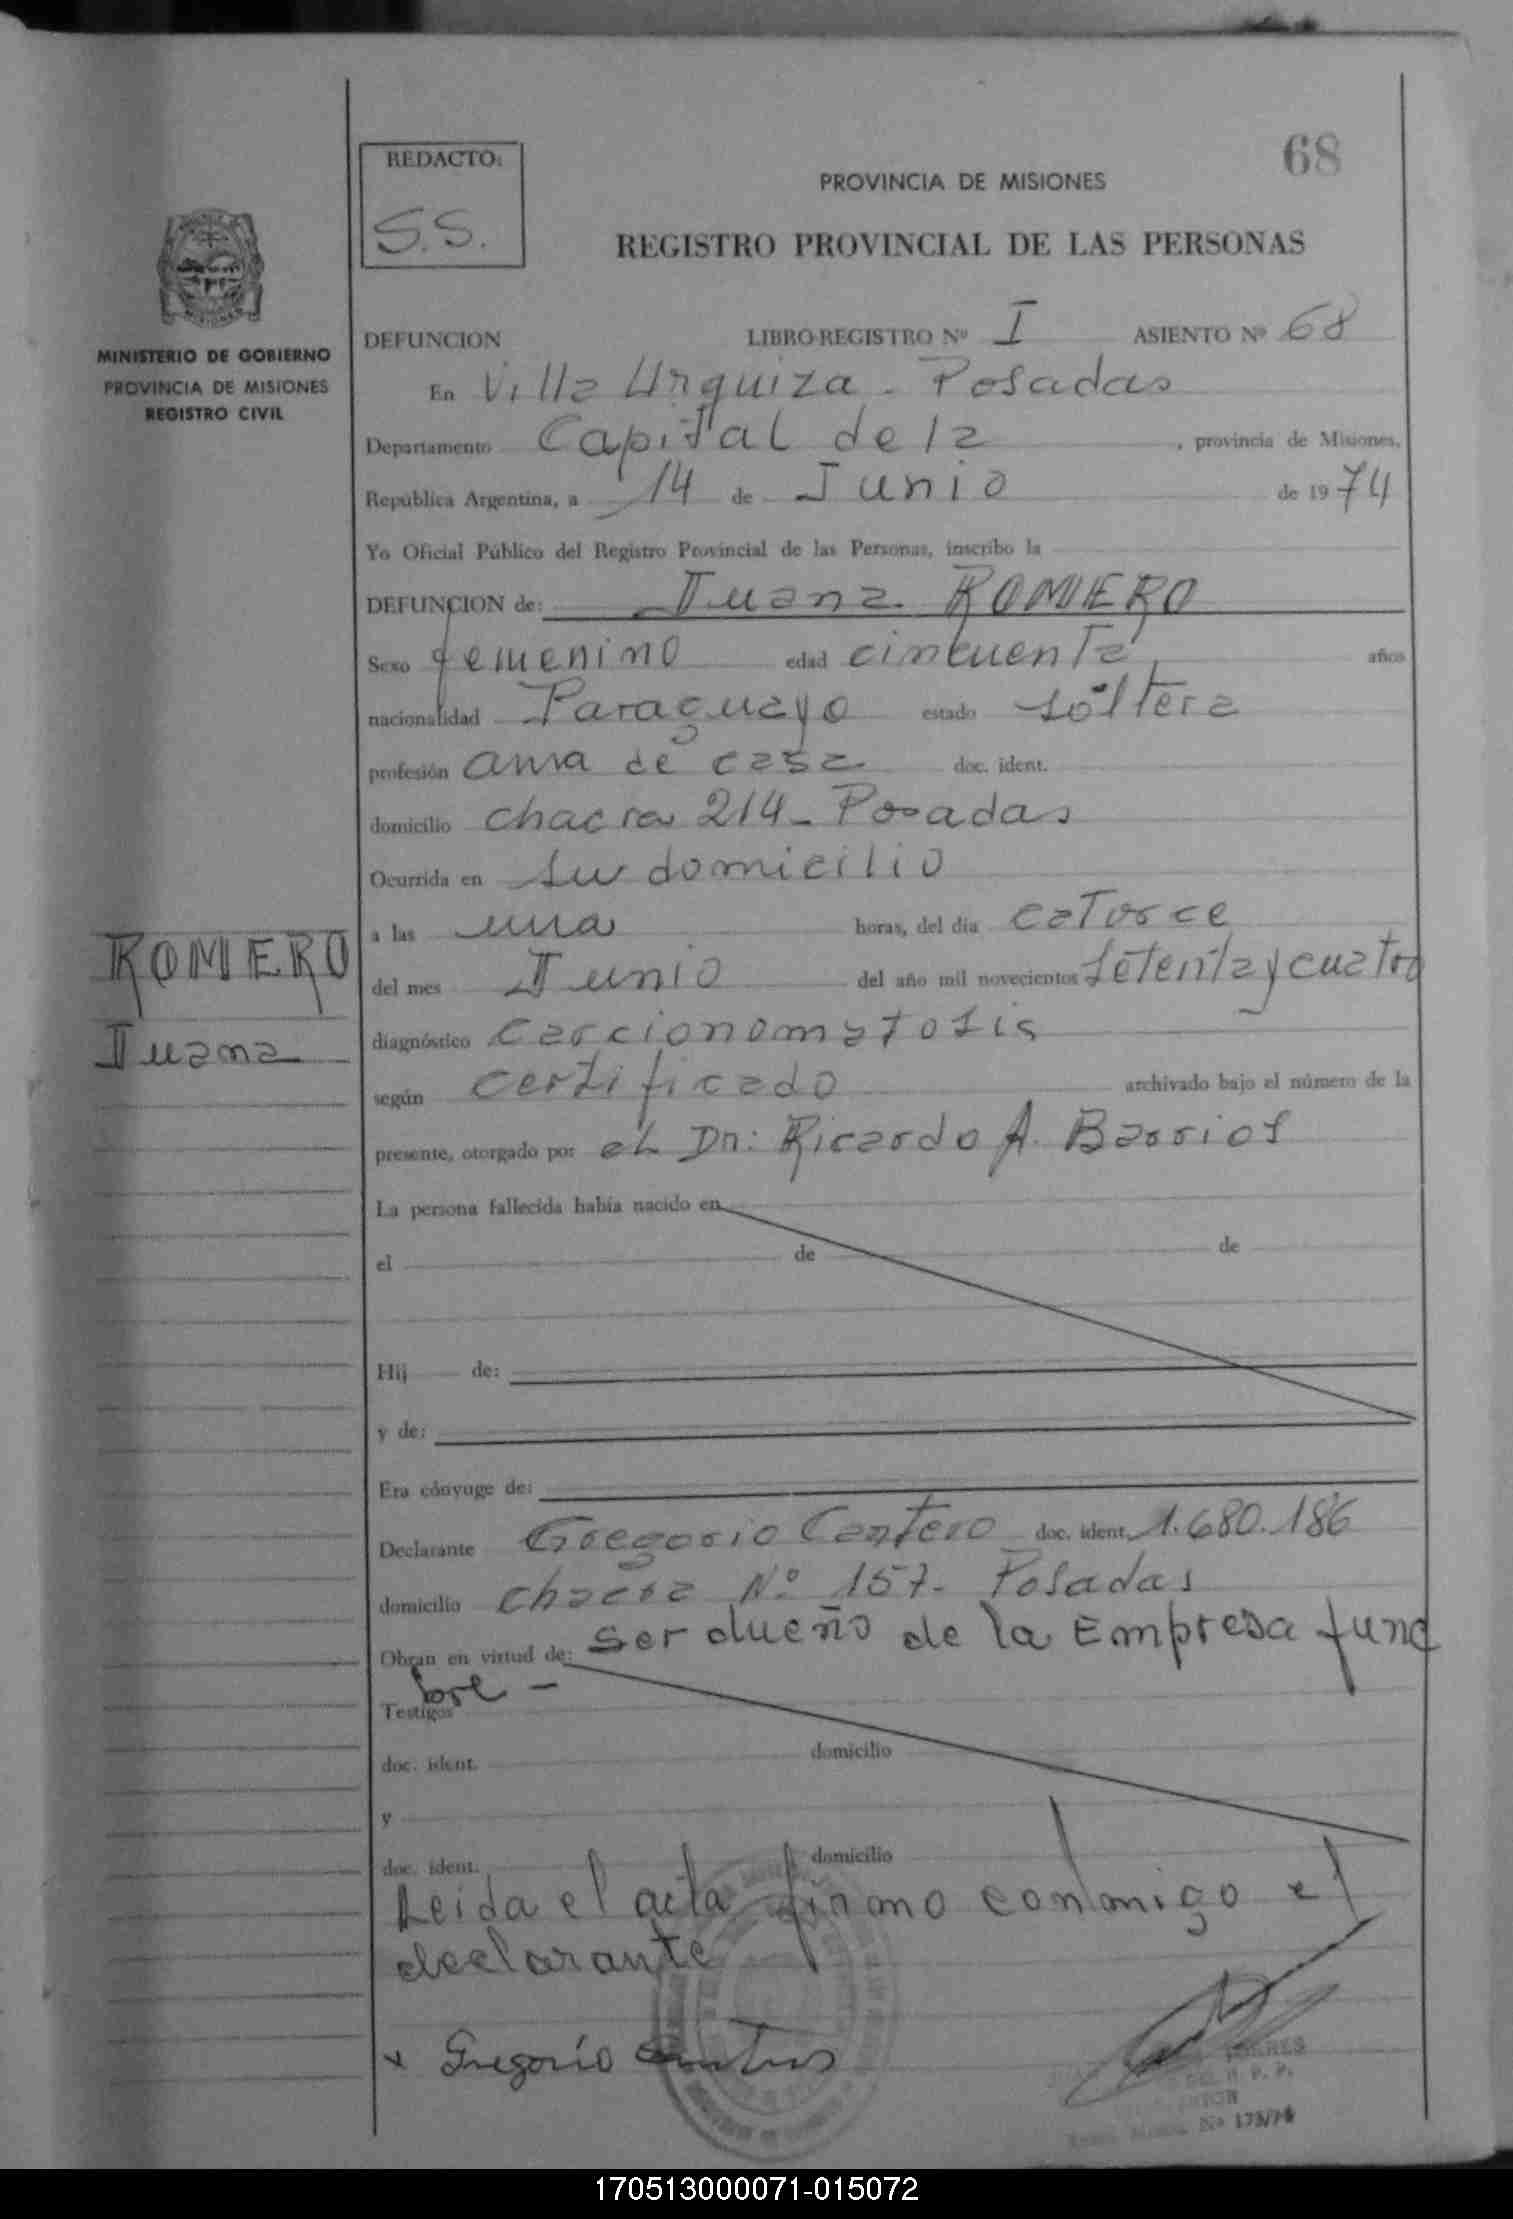 68
REDACTO:
S.S.
PROVINCIA DE MISIONES
REGISTRO PROVINCIAL DE LAS PERSONAS
MISIONES
MINISTERIO DE GOBIERNO
PROVINCIA DE MISIONES
REGISTRO CIVIL
DEFUNCION LIBRO REGISTRO Nº I ASIENTO Nº 68
En Villa Urquiza - Posadas
Departamento Capital de la , provincia de Misiones,
República Argentina, a 14 de Junio de 1974
Yo Oficial Público del Registro Provincial de las Personas, inscribo la
DEFUNCION de: Juana ROMERO
Sexo femenino edad cincuenta años
nacionalidad Paraguayo estado soltera
profesión ama de casa doc. ident.
domicilio chacra 214 - Posadas
Ocurrida en su domicilio
a las una horas, del día catorce
del mes Junio del año mil novecientos setenta y cuatro
ROMERO
Juana
diagnóstico carcionomatosis
según certificado archivado bajo el número de la
presente, otorgado por el Dr: Ricardo A. Barrios
La persona fallecida había nacido en
el de de
Hij de:
y de:
Era cónyuge de:
Declarante Gregorio Cantero doc. ident. 1.680.186
domicilio chacra Nº 157 - Posadas
Obran en virtud de: ser dueño de la Empresa fune
bre -
Testigos
doc. ident. domicilio
y
doc. ident. domicilio
Leida el acta firmo conmigo el
declarante
x Gregorio
Nº 173/74
170513000071-015072